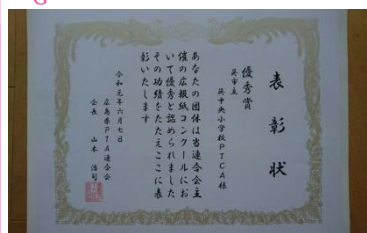 表彰状
優秀賞
呉市立
呉中央小学校PTCA様
あなたの団体は当連合会主
催の広報紙コンクールにお
いて優秀と認められました
その功績をたたえここに表
彰いたします
令和元年六月七日
広島県PTA連合会
会長 山本